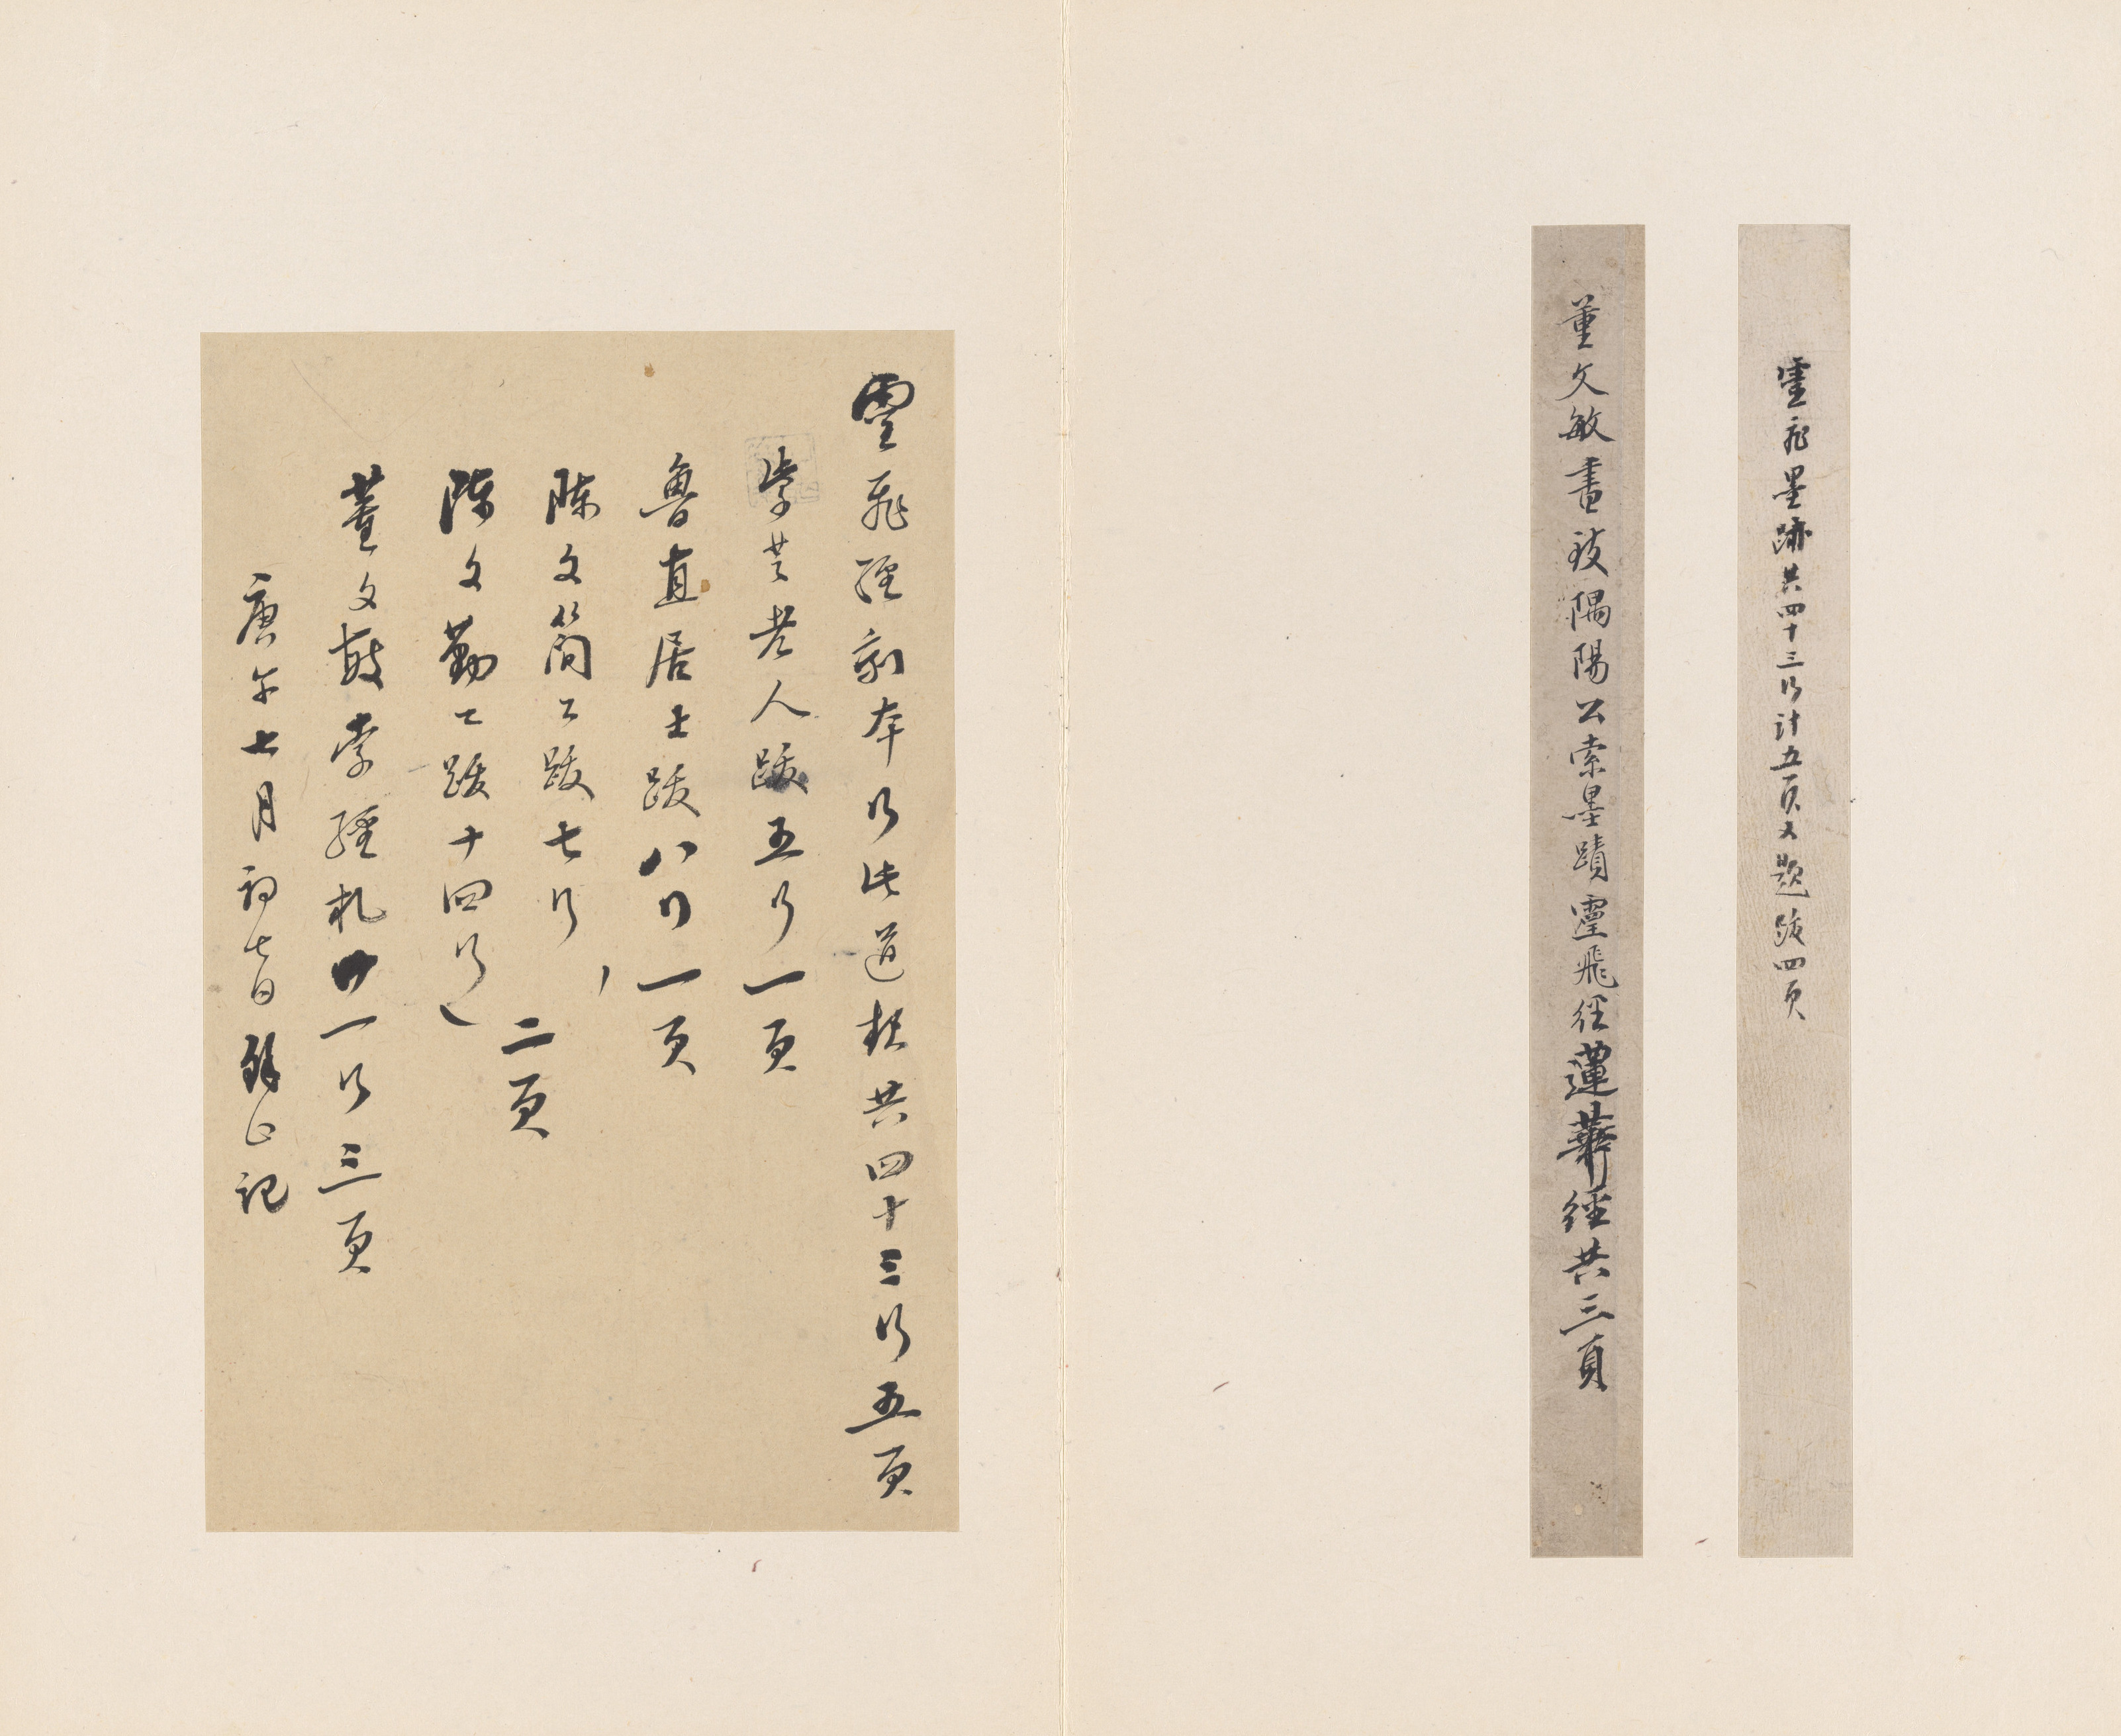 靈飛墨跡共四十三行計五頁又題跋四頁
董文敏書致隅陽公索墨蹟靈飛径蓮華經共三頁
靈飛經副本此道柷共四十三行五頁
紫芝老人跋五行一頁
魯直居士跋八行一頁
陳文簡公跋七行
陳文勤公跋十四行
二頁
董文敏索經札廿一行三頁
庚午七月初七日記